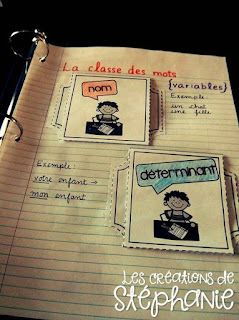 La classe des mots
{variables}
nom
Exemple :
un chat
une fille
Exemple :
votre enfant →
mon enfant
déterminant
LES CRÉATIONS DE
STÉPHANIE